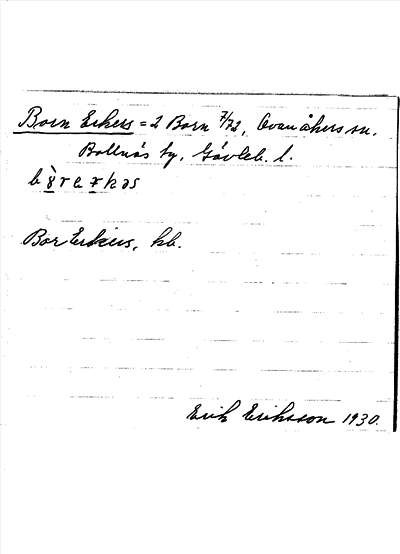 Born Erkers = 2 Born 7/72, Ovanåkers sn.
Bollnäs tg, Gävleb. l.
Bor Erkers, kb.
Erik Eriksson 1930.